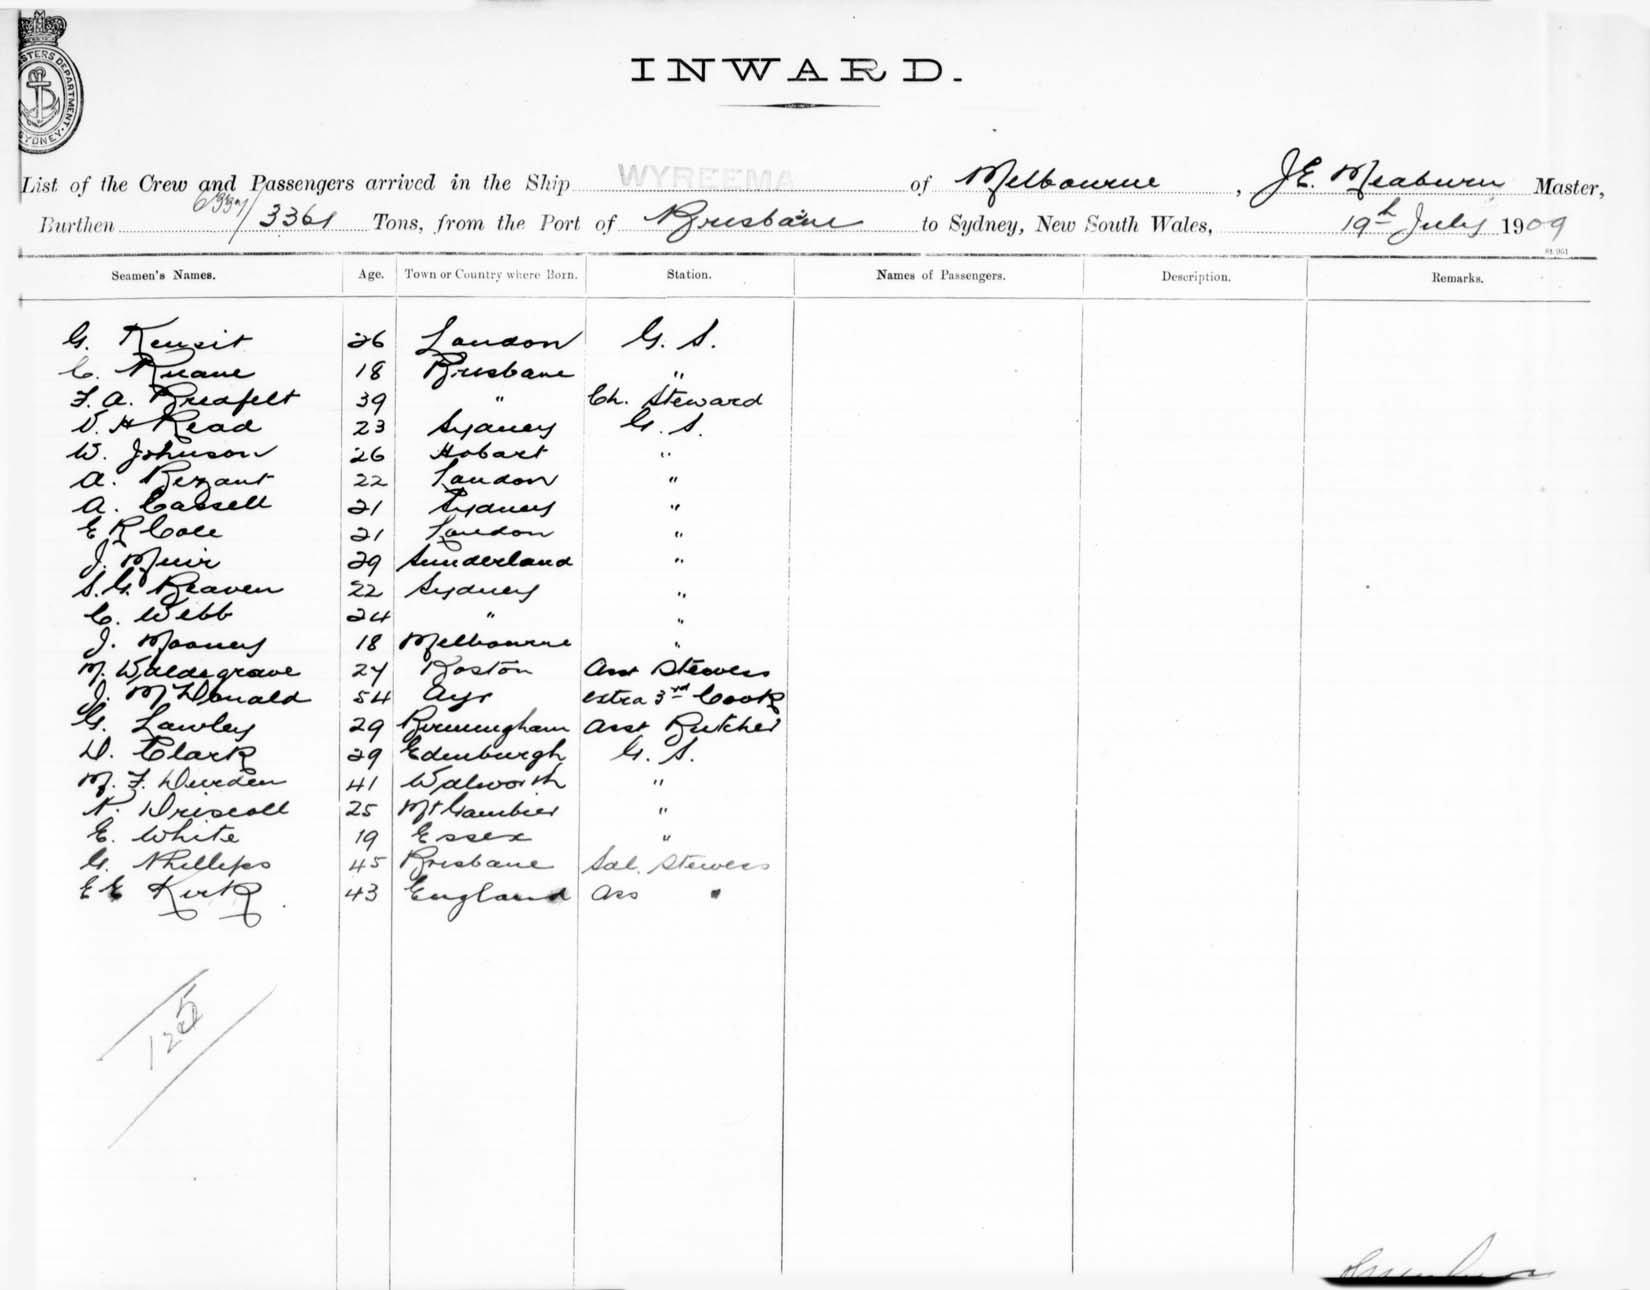 INWARD.
MASTERS DEPARTMENT. SYDNEY.
List of the Crew and Passengers arrived in the Ship WYREEMA of Melbourne, J.E. Meaburn Master,
Burthen 3361 Tons, from the Port of Brisbane to Sydney, New South Wales, 19th July 1909
Seamen's Names. Age. Town or Country where Born. Station. Names of Passengers. Description. Remarks.
G. Kensit 26 London G. S.
C. Ruane 18 Brisbane "
F. A. 39 " Ch. Steward
V. H Read 23 Sydney G. S.
W. Johnson 26 Hobart "
A. Bezant 22 London "
A. Cassell 21 Sydney "
E R Cole 21 London "
J. Muir 29 Sunderland "
S. G. Beaven 22 Sydney "
C. Webb 24 " "
J. Mooney 18 Melbourne "
M. Waldegrave 27 Boston Asst Stewess
J. McDonald 54 Ayr extra 3rd Cook
G. Lawley 29 Birmingham Asst Butcher
D. Clark 29 Edenburgh G. S.
M. F. Durden 41 Walworth "
Driscoll 25 Mt Gambier "
E. White 19 Essex "
G. Phillips 45 Brisbane Sal. Stewess
E E Kirk 43 England Ass "
125